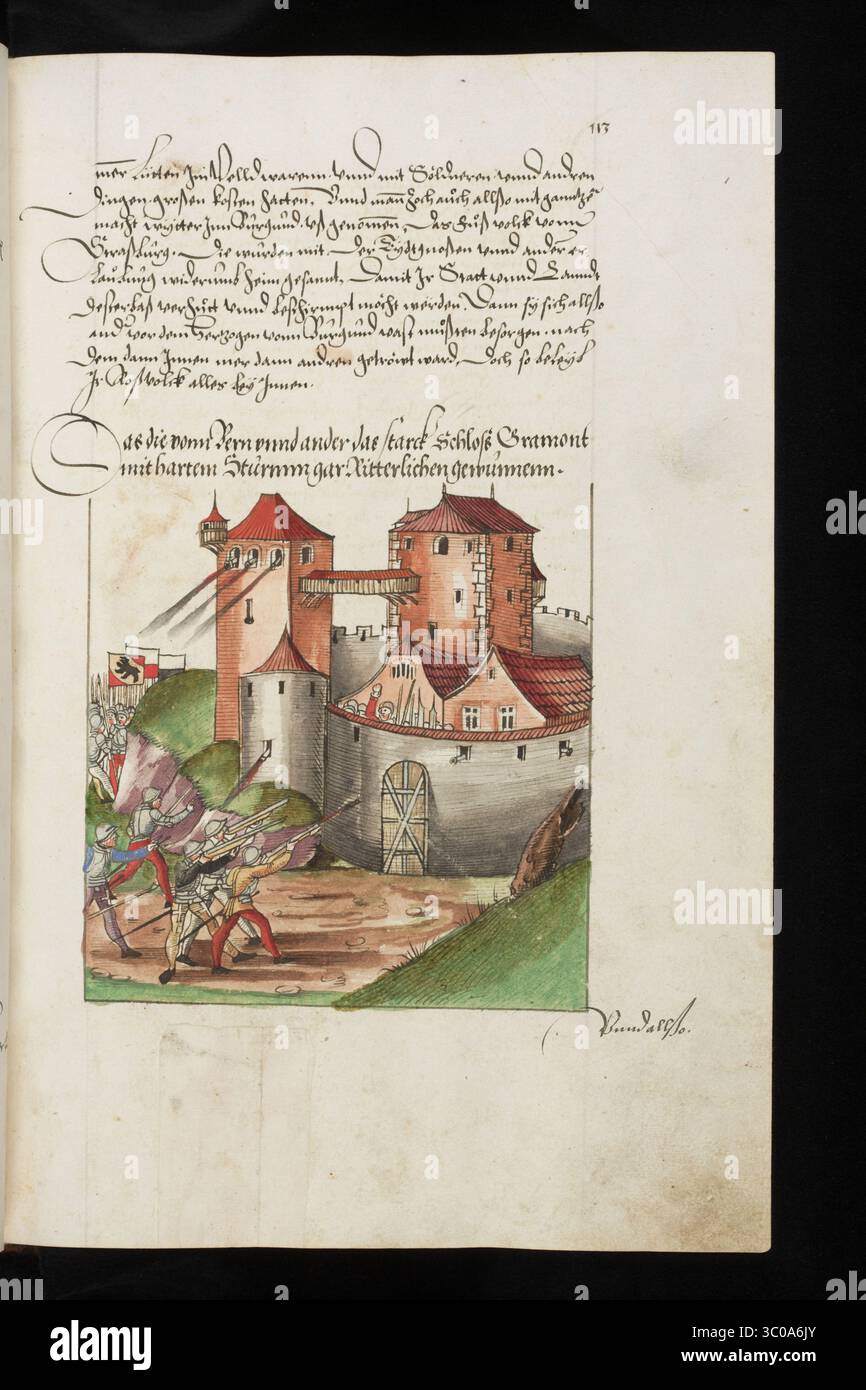 113
mer Lütten Im Velld warenn. Vnnd mit Söldneren vnnd andren
dingen. grossen kosten hatten. Vnnd man zoch auch allso mit gantzer
macht wytter Inn Burgund. vß genommen. Das Fuß volck vonn
Straßburg. Die wurden mit. Der Eydtgnoßen vnnd andern er
laubung widerumb heim gesannt. Damit Jr Statt vnnd Lannd
dester baß verhütt vnnd beschirmpt möcht werden. Dann sy sich allso
and vor dem Hertzogen vonn Burgund vast mußten besorgen. nach
dem dann Innen mer dann andren getröwt ward. Doch so beleyb
Jr Roßvolck alles bey Innen.
Das die vonn Bern vnnd ander das starck Schloß Gramont
mit hartem Sturmm gar Ritterlichen gewunnenn.
Vnnd allßo.
alamy
alamy
Image ID: 3C0A6JY
www.alamy.com